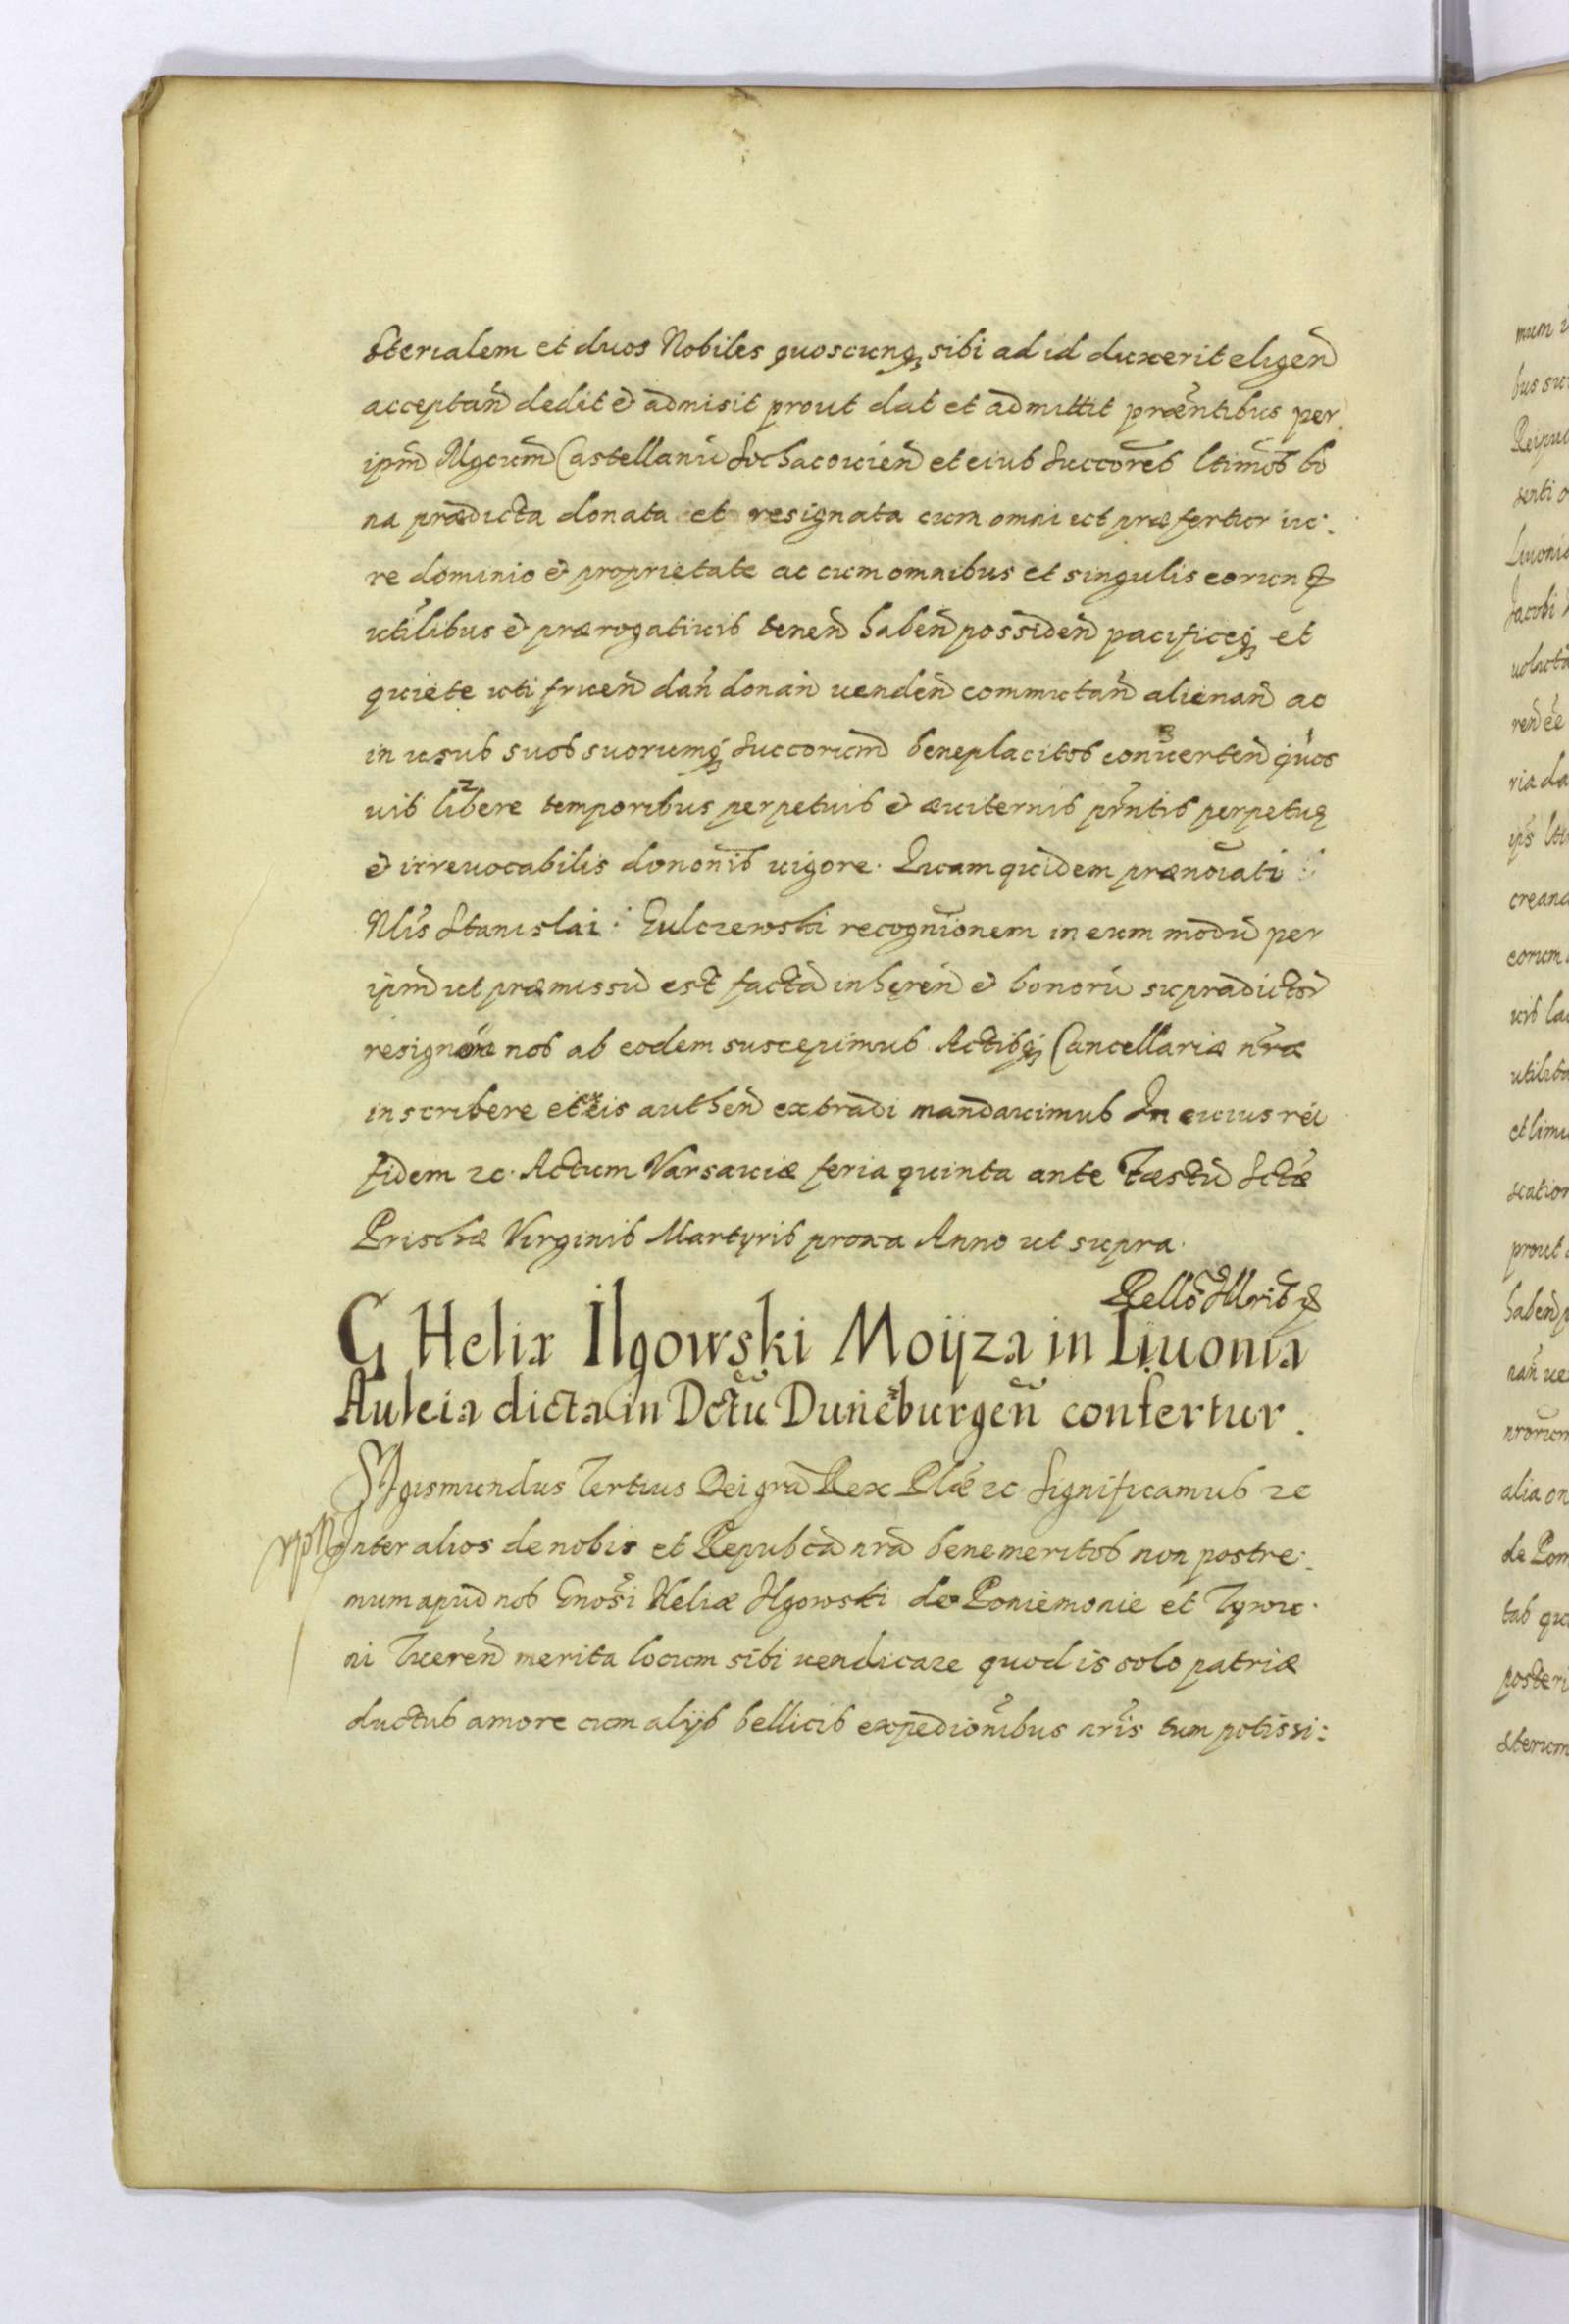 sterialem et duos Nobiles quoscunq sibi ad id duxerit eligen̄
acceptan̄ dedit & admisit prout dat et admittit præn̄tibus per
ipm̄ Mgcum̄ Castellanū Sochacouien̄ et eius Succor̄es ltim̄os bo
na prædicta donata et resignata cum omni ut præfertur iu:
re dominio & proprietate ac cum omnibus et singulis eorun
utīlibus & prærogatiuis tenen̄ haben̄ possiden̄ pacificeq et
quiete uti fruen̄ dan̄ donan̄ uenden̄ commutan̄ alienan̄ ac
in usus suos suorumq Succorum̄ beneplacitos conuerten̄ quos
uis libere temporibus perpetuis & æuiternis prn̄tis perpetuę
& irreuocabilis donon̄is uigore. Quam quidem prænoīati
Nlis̄ Stanislai Gulczewski recogniōnem in eum modū per
ipm̄ ut præmissū est factā inhęren̄ & bonorū supradictor̄
resignōne nos ab eodem suscepimus Actibq Cancellariæ nr̄æ
inscribere et ex eis authen̄ extradi mandauimus In cuius rei
fidem 2c. Actum Varsauiæ feria quinta ante Fæstū Sctǣ
Prischæ Virginis Martyris proxa Anno ut supra.
Rello Illris
G Heliæ Ilgowski Moyza in Liuonia
Auleia dicta in Dctū Duneburgen̄ confertur.
Sigismundus Tertius Dei gra̅ Rex Plǣ 2c Significamus 2c
Inter alios de nobis et Repubca̅ nra̅ benemeritos non postre:
mum apud nos Gnosī Heliæ Ilgowski de Poniemonie et Tyrwu
ni Tueren̄ merita locum sibi uendicare quod is solo patriæ
ductus amore cum alijs bellicis expedionībus nrīs tum potissi:
mum
bus
Reipu
senti
Liuoni
Jacobi
uolunta
ria da
creand
eorum
utilita
et limi
scation
prout
haben̄
nan̄ ue
nrorum
alia
de Pom
tas qu
posteri
sterum